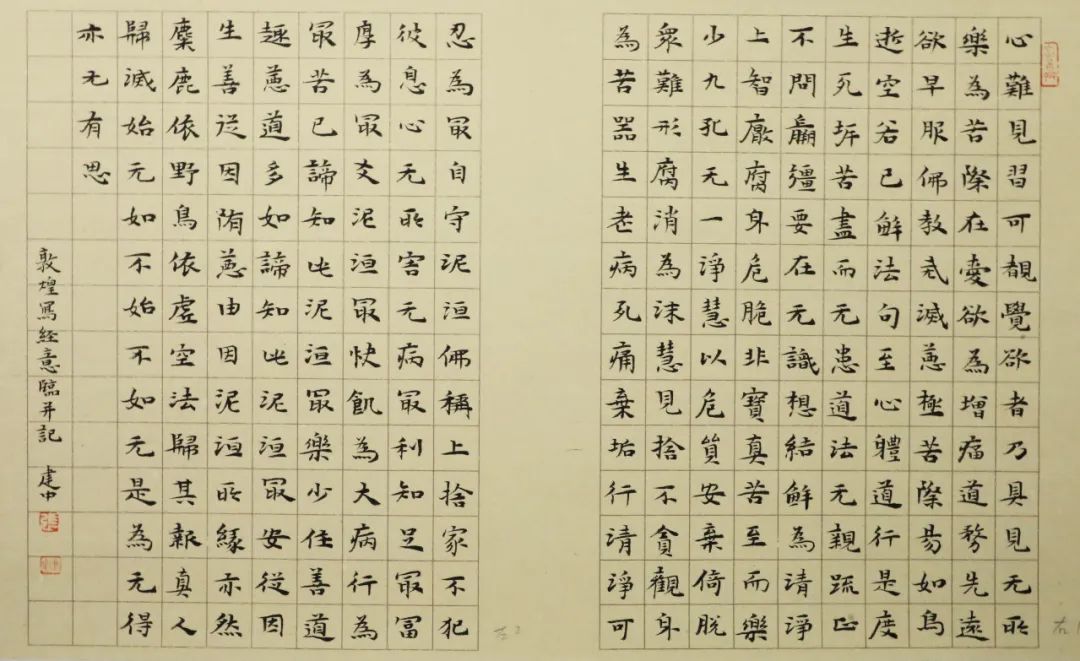 心難見習可覩覺欲者乃具見无所
樂為苦際在愛欲為增痛道務先遠
欲早服佛教戒滅惡極苦際易如鳥
逝空若已解法句至心體道行是度
生死岸苦盡而无患道法无親疏正
不問羸彊要在无識想結解為清淨
上智厭腐身危脆非寶真苦至而樂
少九孔无一淨慧以危質安棄倚脫
衆難形腐消為沫慧見捨不貪觀身
為苦器生老病死痛棄垢行清淨可
忍為最自守泥洹佛稱上捨家不犯
彼息心无所害无病最利知足最富
厚為最友泥洹最快飢為大病行為
最苦已諦知此泥洹最樂少往善道
趣惡道多如諦知此泥洹最安從因
生善從因墮惡由因泥洹所緣亦然
麋鹿依野鳥依虛空法歸其報真人
歸滅始无如不始不如无是為无得
亦无有思
敦煌寫經意臨并記 建中